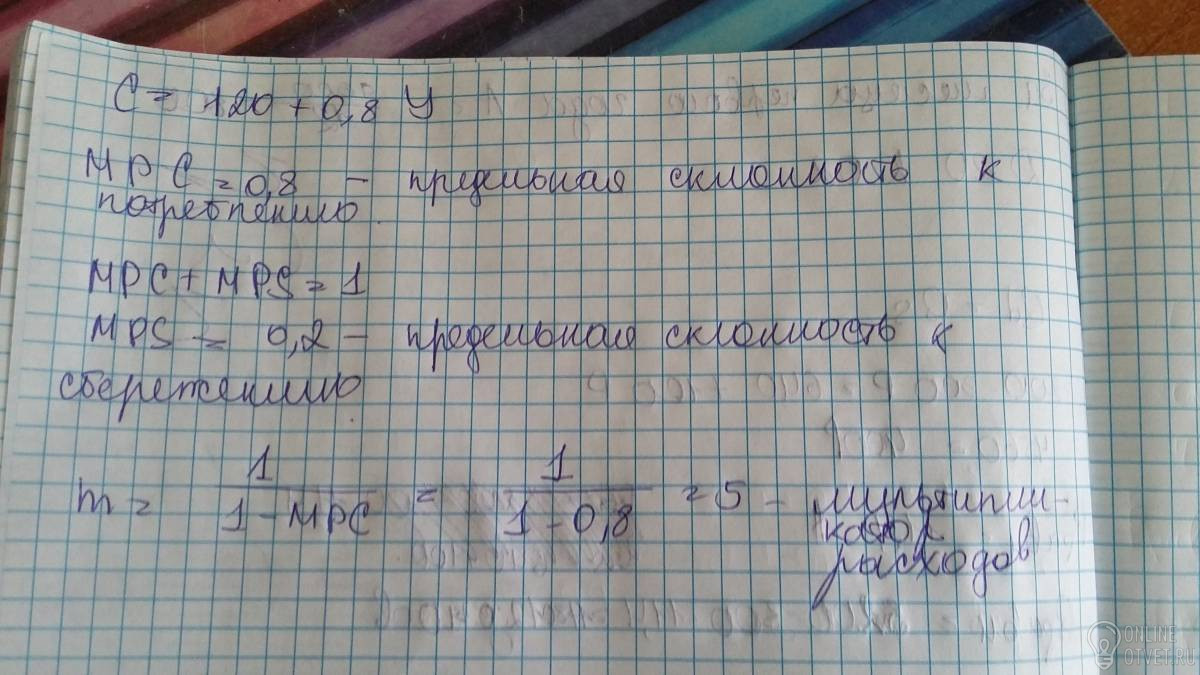 C = 120 + 0,8 У
MPC = 0,8 – предельная склонность к
потреблению.
MPC + MPS = 1
MPS = 0,2 – предельная склонность к
сбережению.
m = 1 / (1 - MPC) = 1 / (1 - 0,8) = 5 – мультипли-
катор
расходов
ONLINE
OTVET.RU